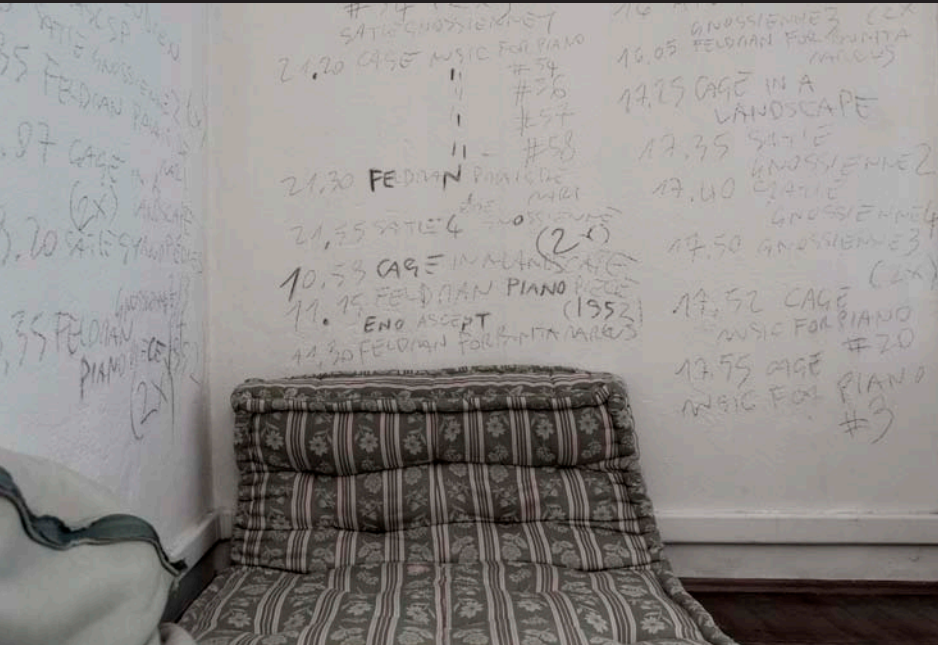 SATIE GNOSSIENNE
35 FELDMAN
.07 CAGE
(2X)
.20 SATIE GYMNOPEDIES
GNOSSIENNE
,35 FELDMAN
PIANO PIECE
(2X)
SATIE GNOSSIENNE 1
21.20 CAGE MUSIC FOR PIANO
" #54
" #56
" #57
" #58
21,30 FELDMAN
21,55 SATIE 4 GNOSSIENNE
(2X)
10.58 CAGE IN A LANDSCAPE
11.15 FELDMAN PIANO PIECE
(1952)
ENO ASCEPT
11,30 FELDMAN FOR BUNITA MARCUS
GNOSSIENNE 3 (2X
16.05 FELDMAN FOR BUNITA
MARCUS
17.25 CAGE IN A
LANDSCAPE
17.35 SATIE
GNOSSIENNE 2
17.40 SATIE
GNOSSIENNE 4
17.50 GNOSSIENNE 3
(2X)
17,52 CAGE
MUSIC FOR PIANO
#20
17.55 CAGE
MUSIC FOR PIANO
#3